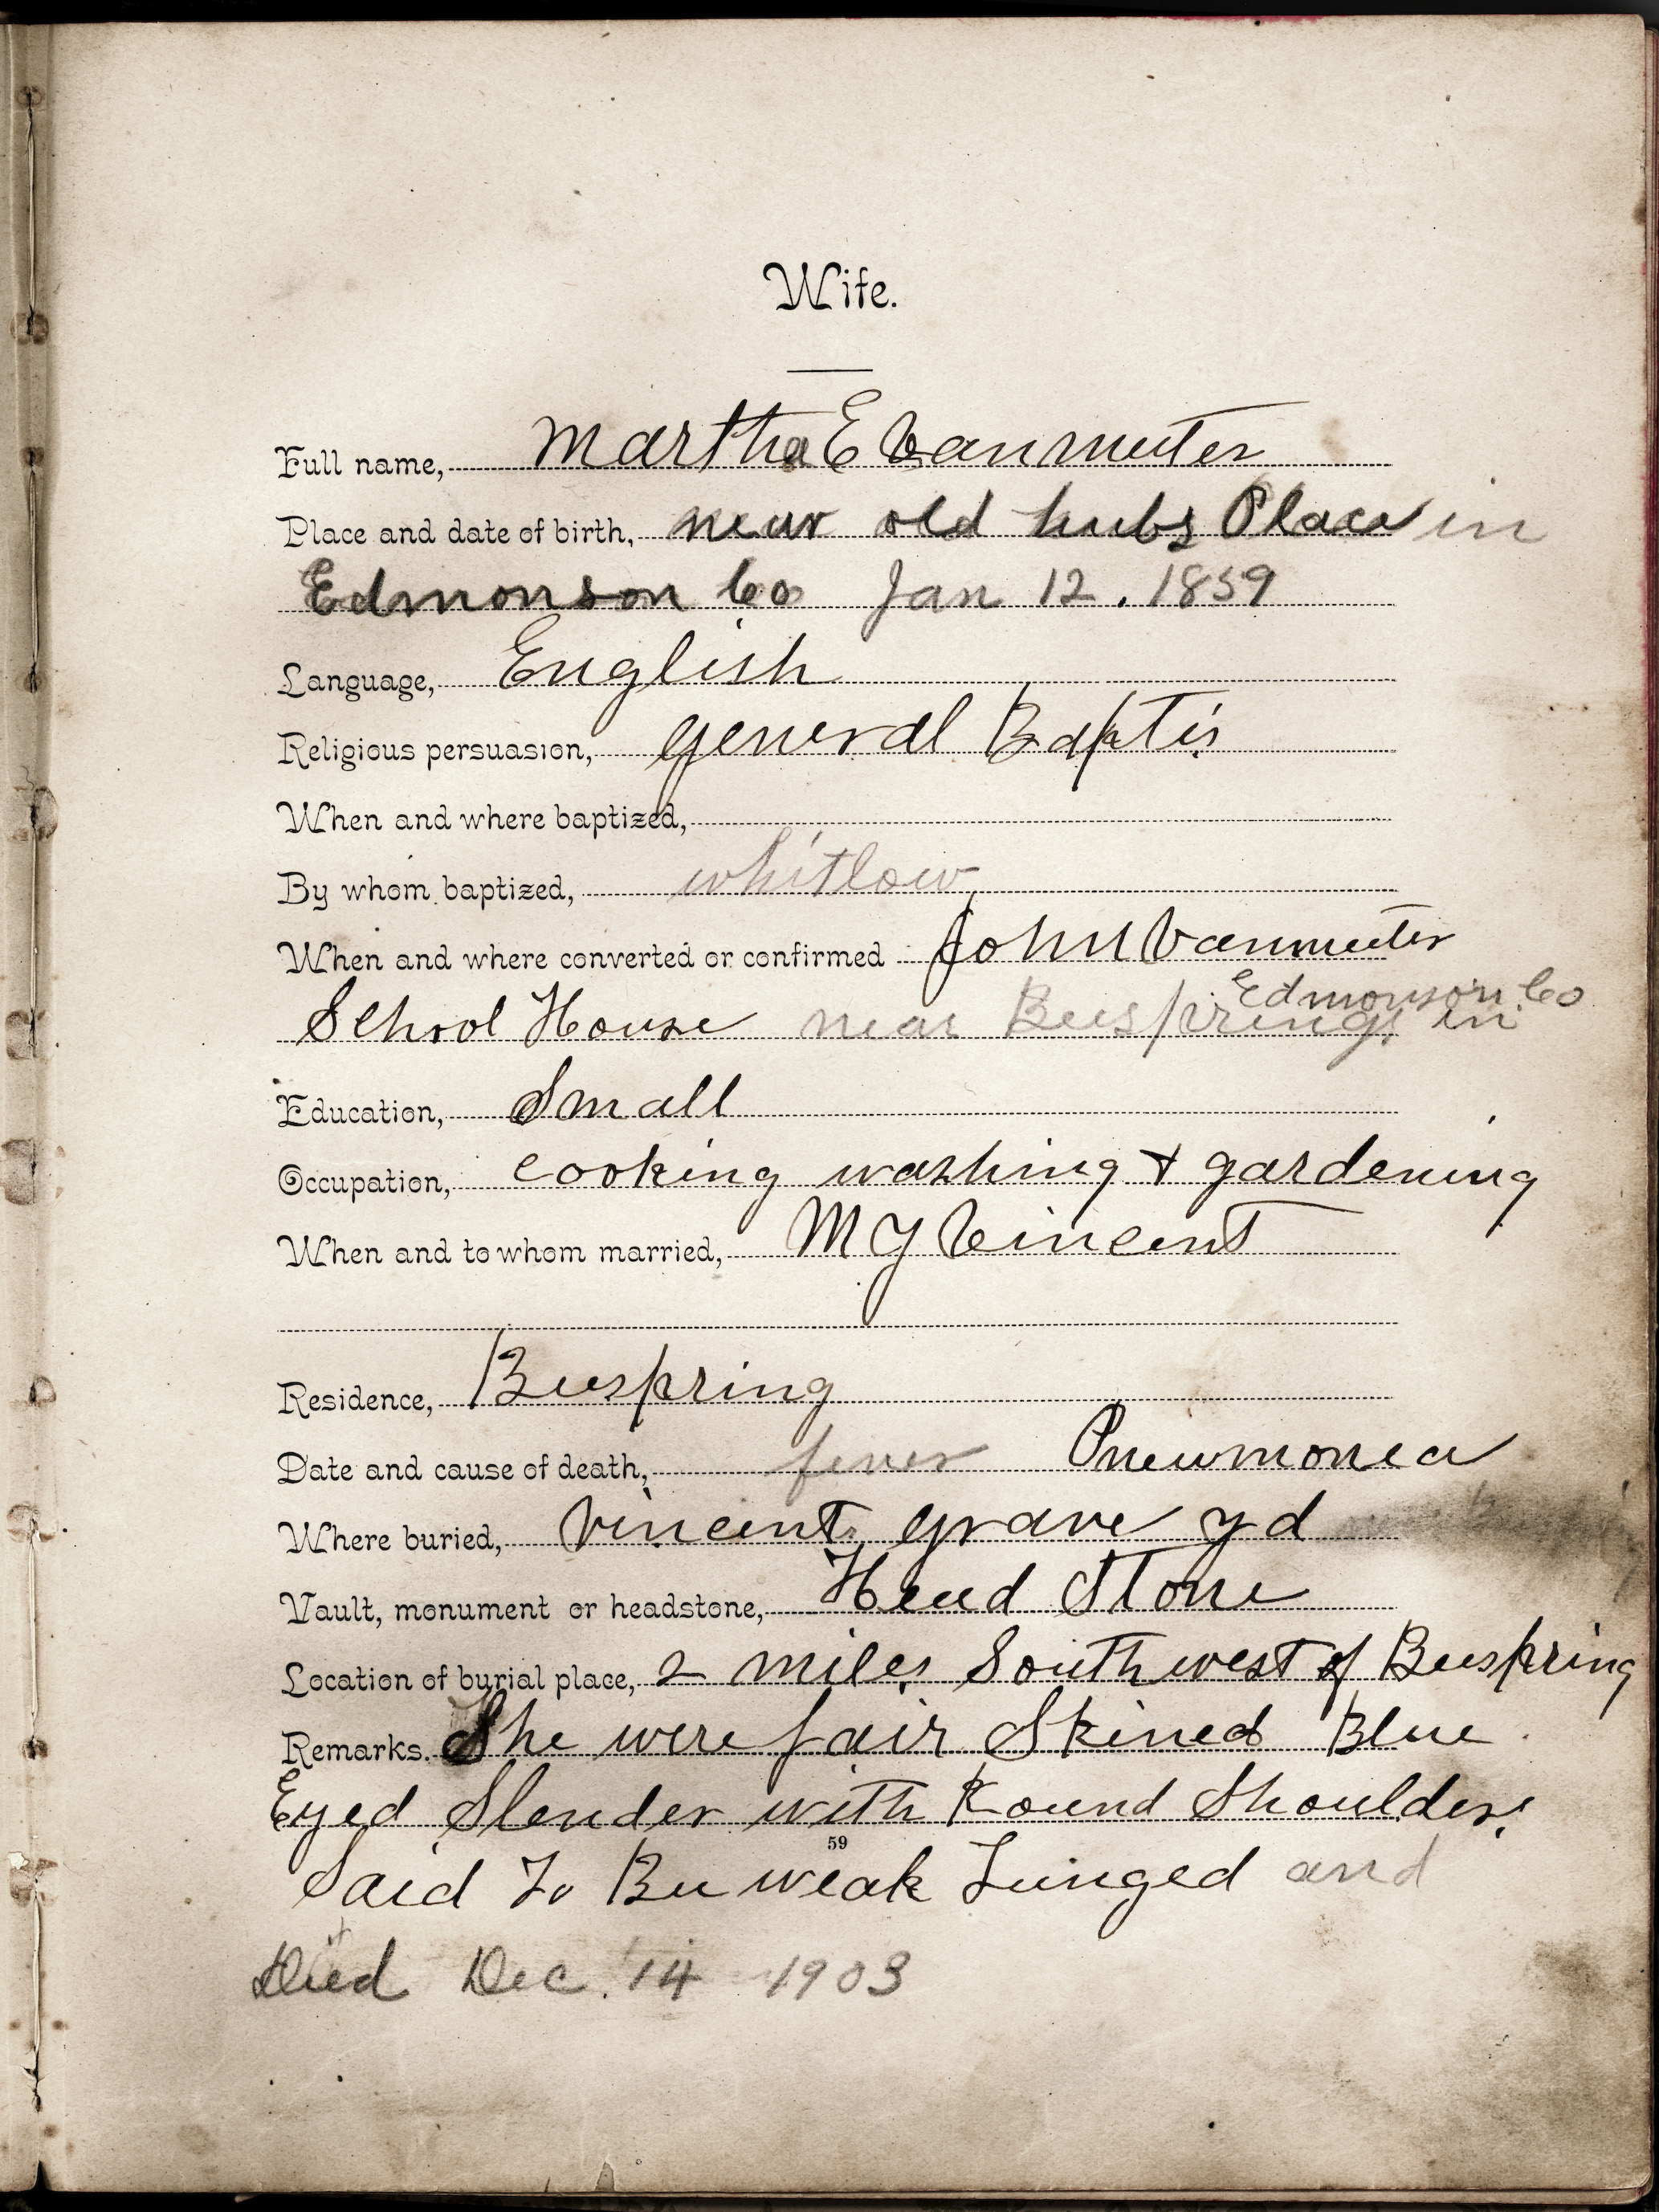 Wife.
Full name, Martha E Vanmeter
Place and date of birth, near old hubs Place in
Edmonson Co Jan 12. 1859
Language, English
Religious persuasion, general Baptis
When and where baptized,
By whom baptized, whitlow
When and where converted or confirmed John Vanmeter
School House near Beespring, in Edmonson Co
Education, Small
Occupation, cooking washing + gardening
When and to whom married, M Y Vincent
Residence, Beespring
Date and cause of death, fever Pneumonea
Where buried, Vincent grave yd
Vault, monument or headstone, Head Stone
Location of burial place, 2 miles South west of Beespring
Remarks. She were fair Skined Blue
Eyed Slender with Round Shoulders
59
Said To Be weak Lunged and
Died Dec. 14 1903